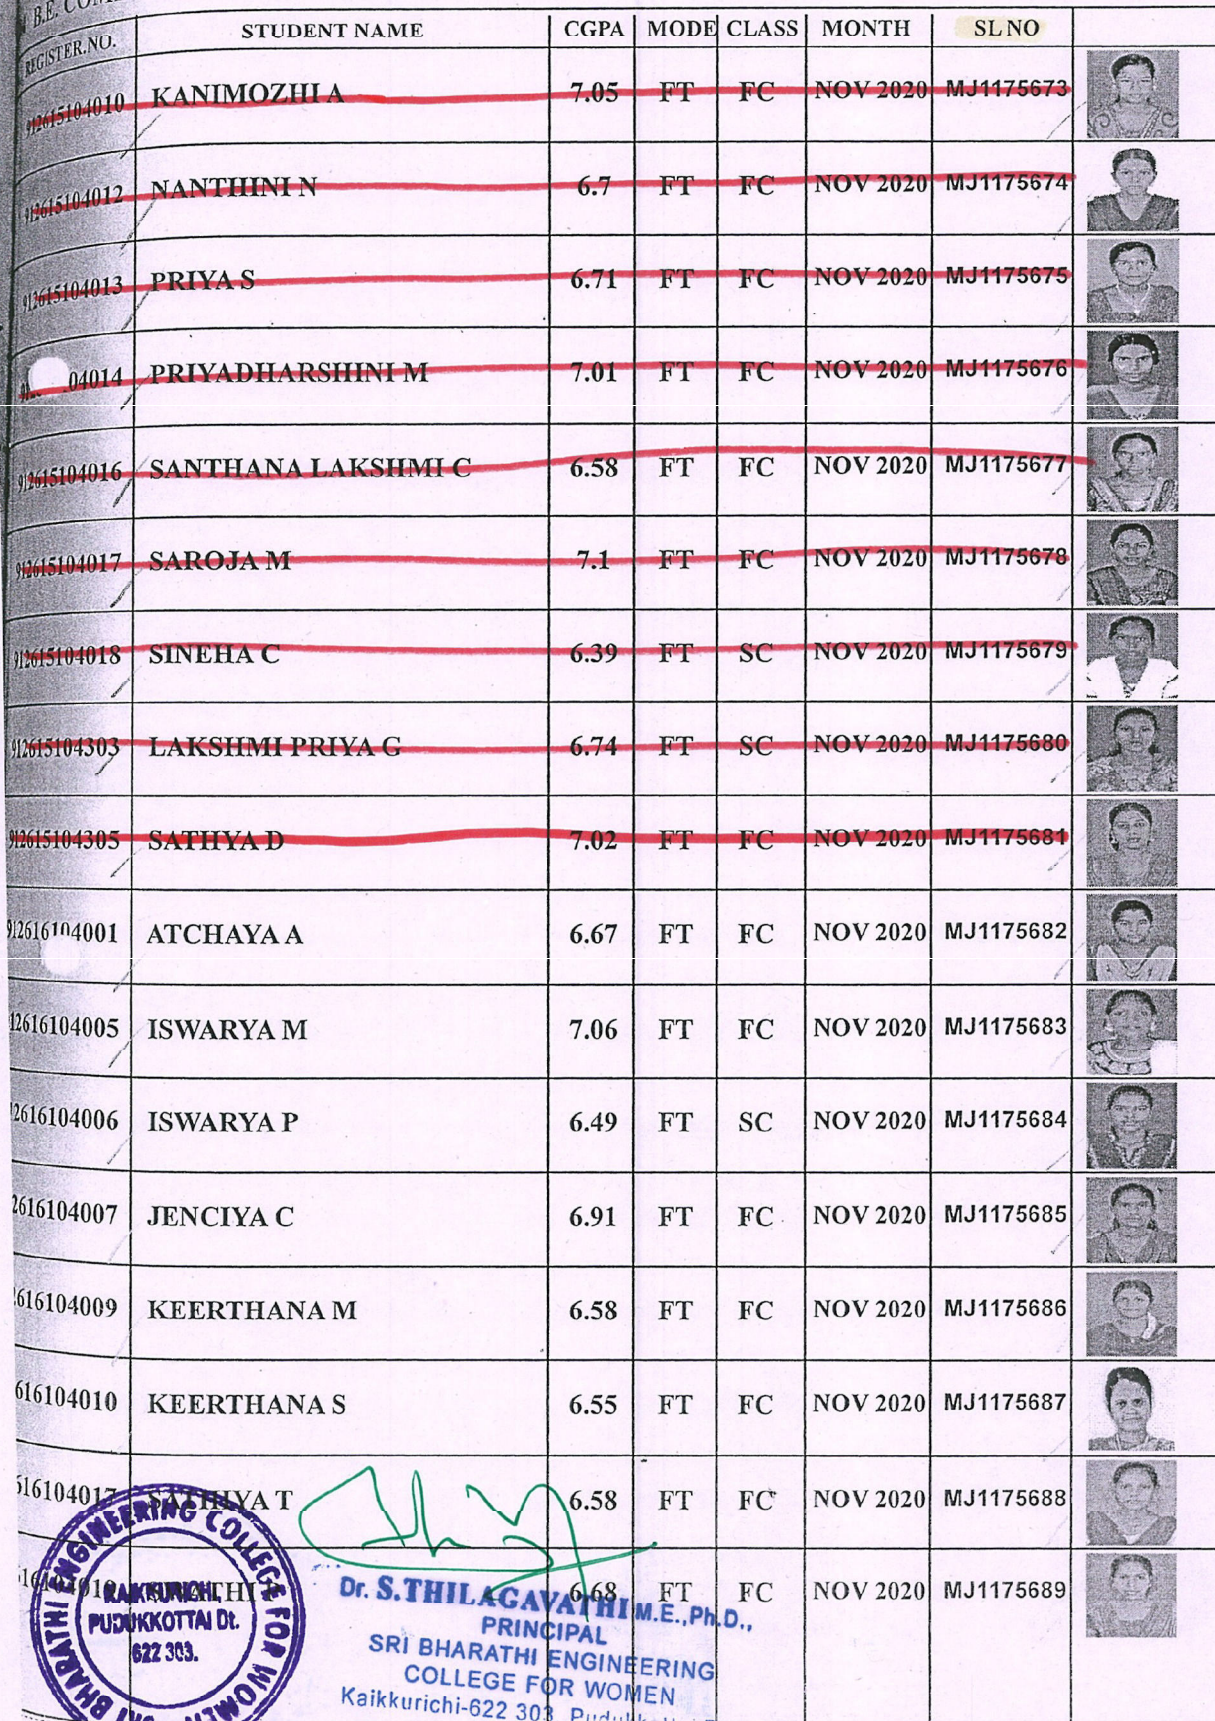 B.E. COM
REGISTER.NO. STUDENT NAME CGPA MODE CLASS MONTH SL NO
912615104010 KANIMOZHI A 7.05 FT FC NOV 2020 MJ1175673
912615104012 NANTHINI N 6.7 FT FC NOV 2020 MJ1175674
912615104013 PRIYA S 6.71 FT FC NOV 2020 MJ1175675
04014 PRIYADHARSHINI M 7.01 FT FC NOV 2020 MJ1175676
912615104016 SANTHANA LAKSHMI C 6.58 FT FC NOV 2020 MJ1175677
912615104017 SAROJA M 7.1 FT FC NOV 2020 MJ1175678
912615104018 SINEHA C 6.39 FT SC NOV 2020 MJ1175679
912615104303 LAKSHMI PRIYA G 6.74 FT SC NOV 2020 MJ1175680
912615104305 SATHYA D 7.02 FT FC NOV 2020 MJ1175681
912616104001 ATCHAYA A 6.67 FT FC NOV 2020 MJ1175682
12616104005 ISWARYA M 7.06 FT FC NOV 2020 MJ1175683
2616104006 ISWARYA P 6.49 FT SC NOV 2020 MJ1175684
2616104007 JENCIYA C 6.91 FT FC NOV 2020 MJ1175685
616104009 KEERTHANA M 6.58 FT FC NOV 2020 MJ1175686
616104010 KEERTHANA S 6.55 FT FC NOV 2020 MJ1175687
616104017 SATHIYA T 6.58 FT FC NOV 2020 MJ1175688
6.68 FT FC NOV 2020 MJ1175689
SRI BHARATHI ENGINEERING COLLEGE FOR WOMEN
KAIKKURICHI,
PUDUKKOTTAI Dt.
622 303.
Dr. S.THILAGAVATHI M.E.,Ph.D.,
PRINCIPAL
SRI BHARATHI ENGINEERING
COLLEGE FOR WOMEN
Kaikkurichi-622 303